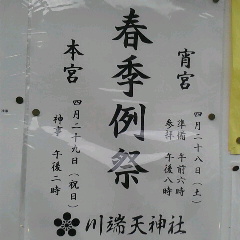 春季例祭
宵宮
四月二十八日（木）
準備 午前六時
参拝 午後八時
本宮
四月二十九日（祝日）
神事 午後二時
川端天神社